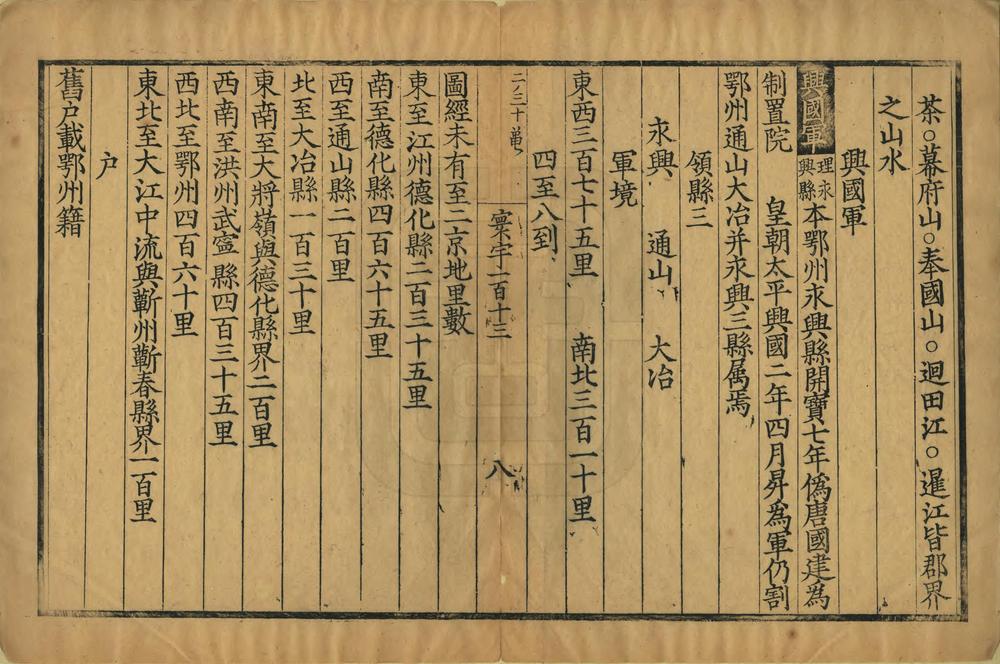 茶○幕府山○奉國山○迴田江○暹江皆郡界
之山水
興國軍
興國軍理永興縣本鄂州永興縣開寶七年偽唐國建為
制置院 皇朝太平興國二年四月昇為軍仍割
鄂州通山大冶并永興三縣属焉
領縣三
永興 通山 大冶
軍境
東西三百七十五里 南北三百一十里
四至八到
寰宇一百十三
八
圖經未有至二京地里數
東至江州德化縣二百三十五里
南至德化縣四百六十五里
西至通山縣二百里
北至大冶縣一百三十里
東南至大將嶺與德化縣界二百里
西南至洪州武寧縣四百三十五里
西北至鄂州四百六十里
東北至大江中流與蘄州蘄春縣界一百里
户
舊户載鄂州籍